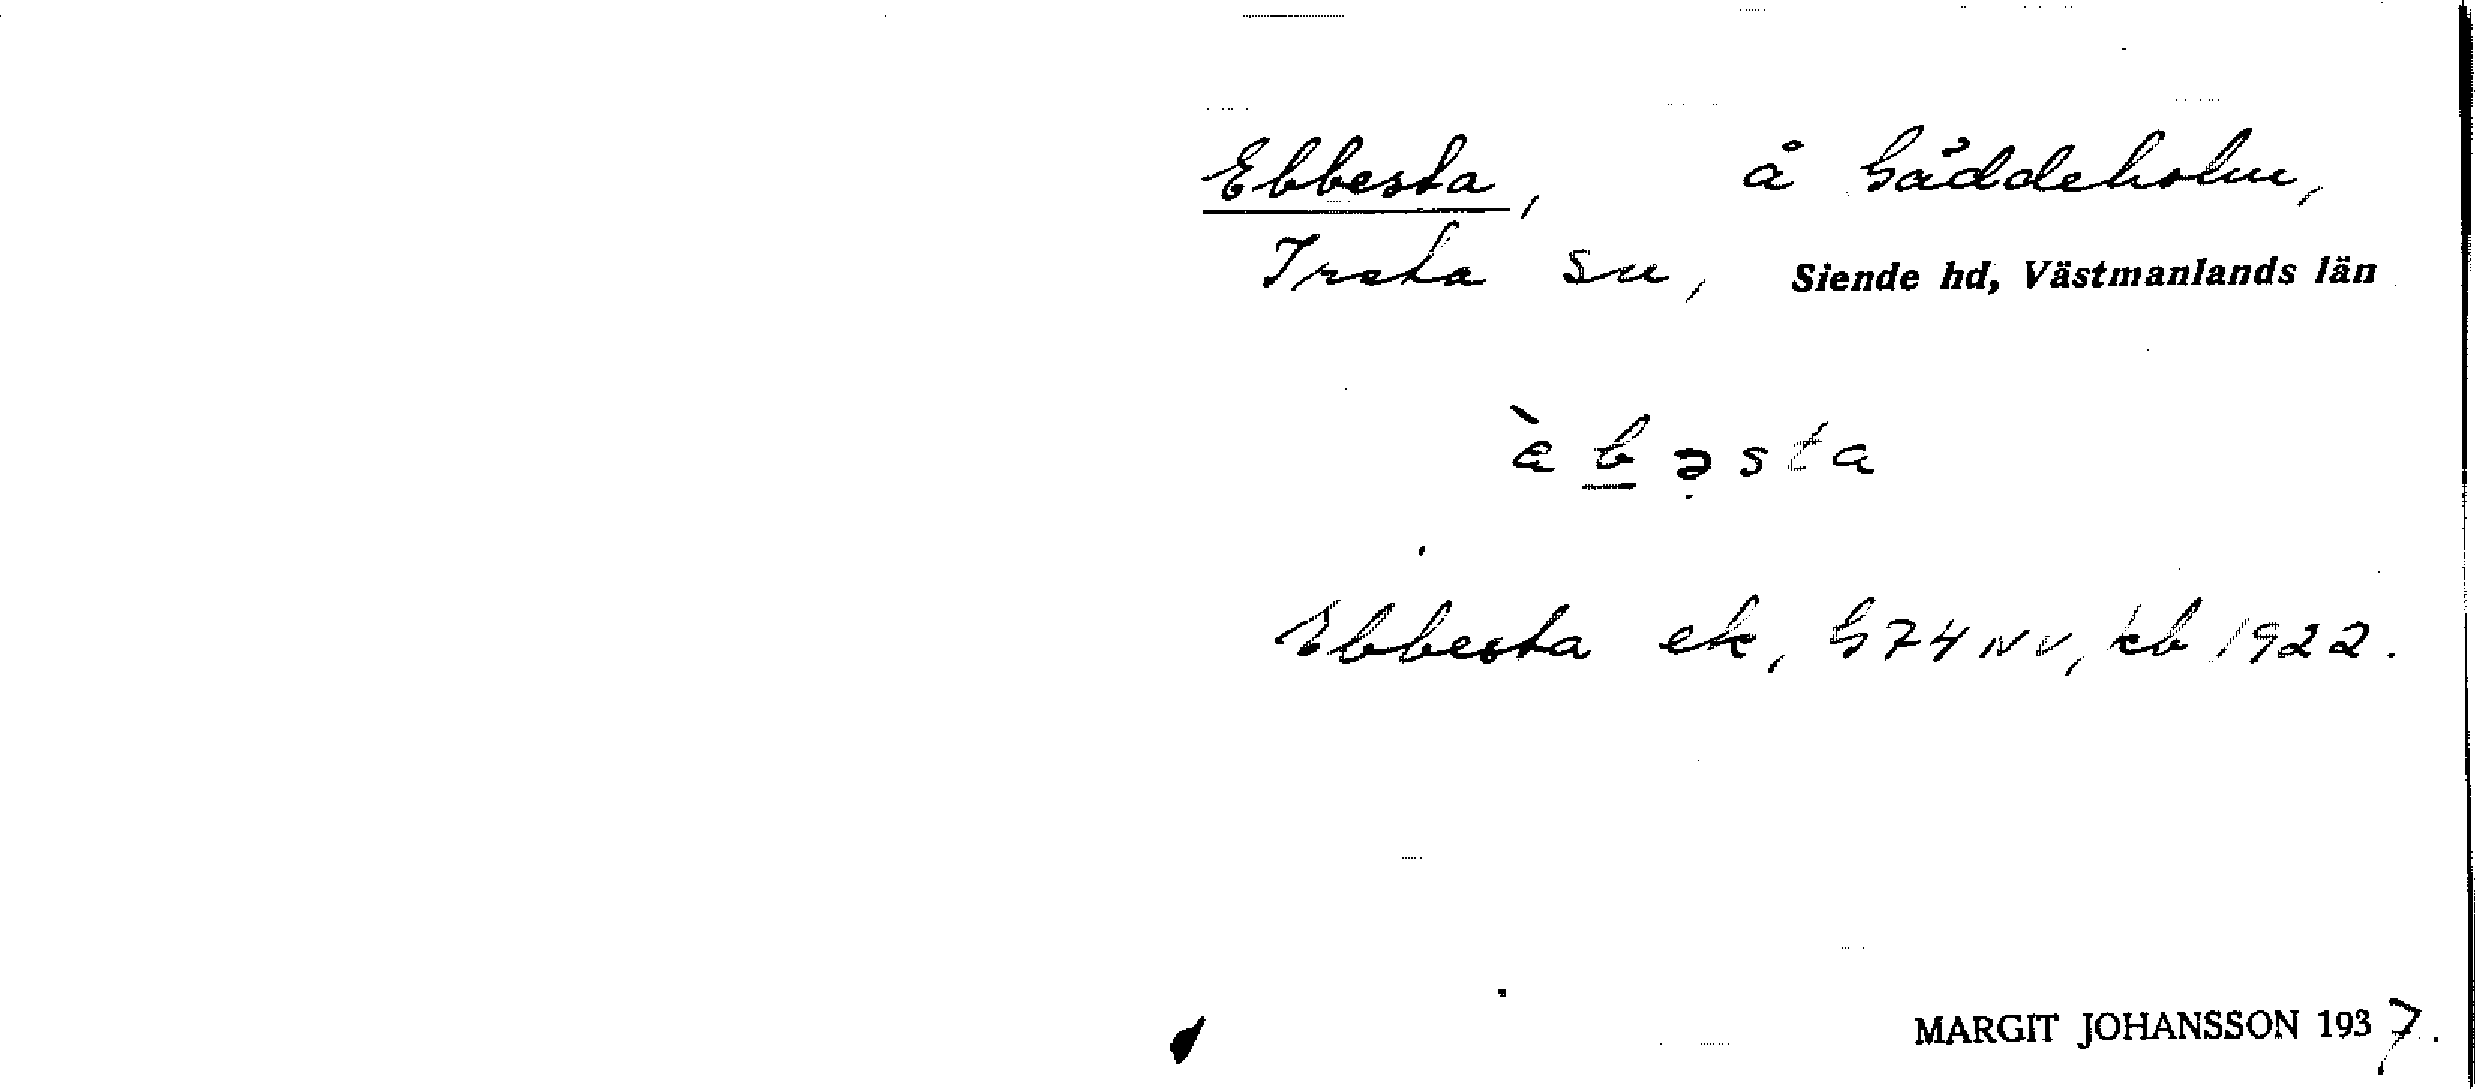 Ebbesta, å Gäddeholm,
Irsta sn, Siende hd, Västmanlands län
èb̲əsta
Ebbesta ek, G74NV, kb 1922.
MARGIT JOHANSSON 1937.